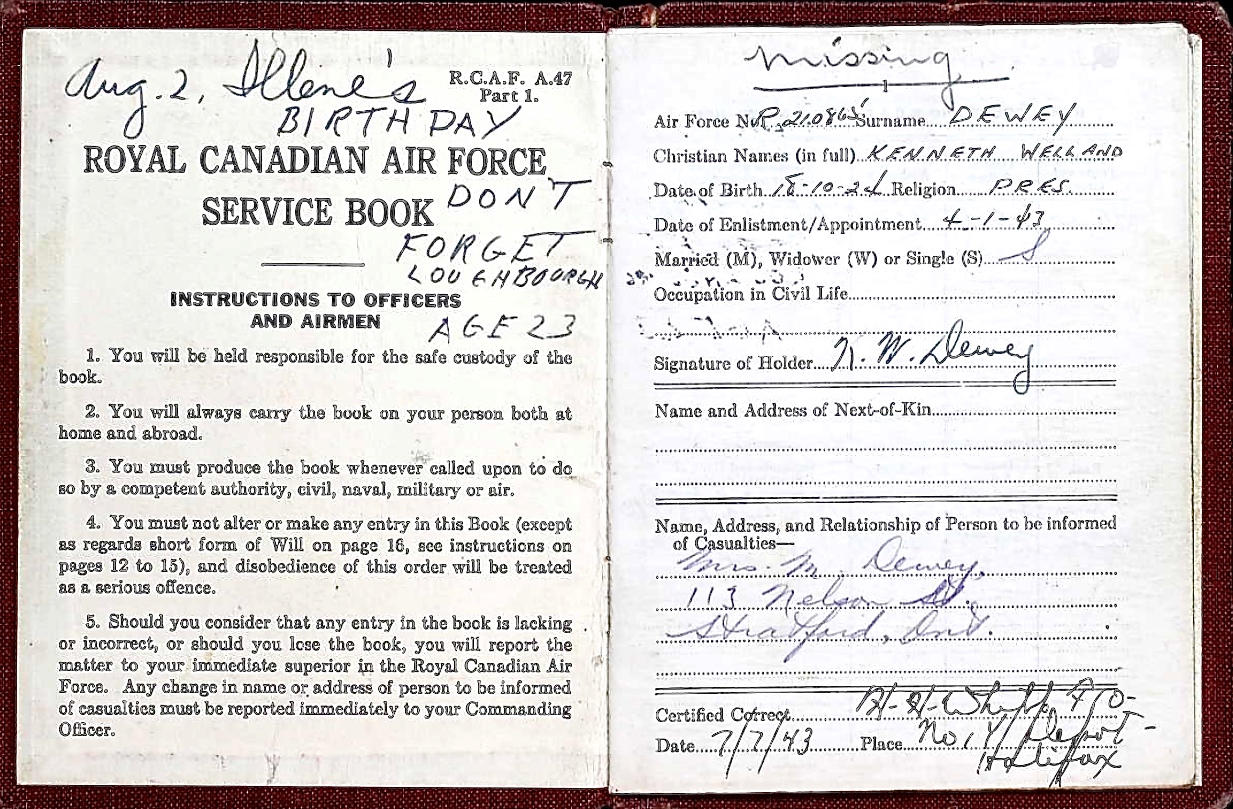 Aug. 2, Illene's
BIRTHDAY
R.C.A.F. A.47
Part 1.
ROYAL CANADIAN AIR FORCE
SERVICE BOOK
DON'T
FORGET
LOUGHBOURGH
AGE 23
INSTRUCTIONS TO OFFICERS
AND AIRMEN
1. You will be held responsible for the safe custody of the
book.
2. You will always carry the book on your person both at
home and abroad.
3. You must produce the book whenever called upon to do
so by a competent authority, civil, naval, military or air.
4. You must not alter or make any entry in this Book (except
as regards short form of Will on page 16, see instructions on
pages 12 to 15), and disobedience of this order will be treated
as a serious offence.
5. Should you consider that any entry in the book is lacking
or incorrect, or should you lose the book, you will report the
matter to your immediate superior in the Royal Canadian Air
Force. Any change in name or address of person to be informed
of casualties must be reported immediately to your Commanding
Officer.
Missing
Air Force No. R.210865 Surname DEWEY
Christian Names (in full) KENNETH WELLAND
Date of Birth 18-10-24 Religion PRES.
Date of Enlistment/Appointment 4-1-43
Married (M), Widower (W) or Single (S) S
Occupation in Civil Life
Signature of Holder K. W. Dewey
Name and Address of Next-of-Kin
Name, Address, and Relationship of Person to be informed
of Casualties—
Mrs. M. Dewey,
113 Nelson St.,
Stratford, Ont.
Certified Correct H. H. F/O-
Date 7/7/43 Place No. 1 Y Depot-
Halifax